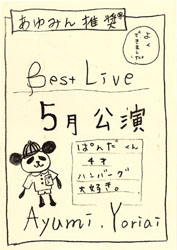 あゆみん推奨®
よく
できました
Best Live
5月公演
ぱんだくん
4才
ハンバーグ
大好き。
Ayumi.Yoriai